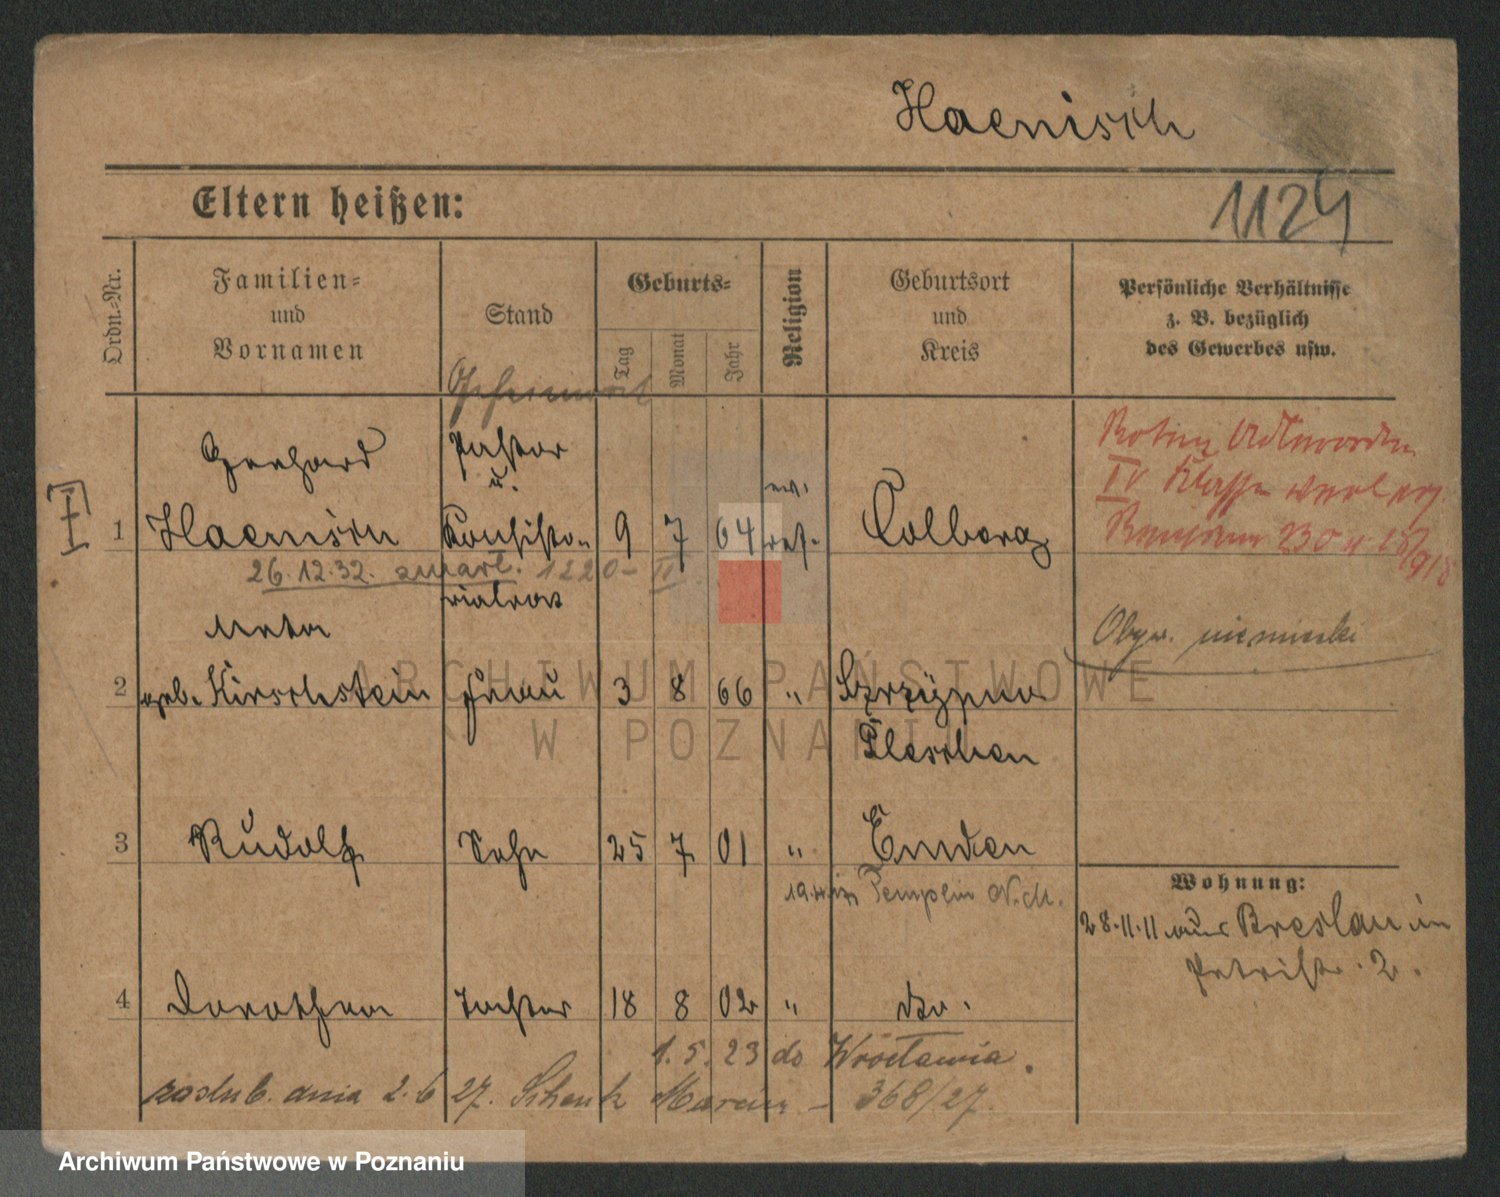 Haenisch
Eltern heißen:
1124
Ordn.-Nr.
Familien-
und
Vornamen
Stand
Geburts-
Tag
Monat
Jahr
Religion
Geburtsort
und
Kreis
Persönliche Verhältnisse
z. B. bezüglich
des Gewerbes usw.
Geheimrat
Gerhard
Pastor
u.
1 Haenisch Konsisto- 9 7 64 ev. ref. Colberg
rialrat
26.12.32. zmarł. 1220-II
Roten Adlerorden
IV Klasse
230 18/918
Obyw. niemiecki
Meta
2 geb. Kirschstein Frau 3 8 66 " Strzyżew
Pleschen
3 Rudolf Sohn 25 7 01 " Emden
Templin N.M.
Wohnung:
28.11.11 aus Breslau in
Petristr. 2.
4 Dorothea Tochter 18 8 02 " dto.
1.5.23 do Wrocławia.
zaślub. dnia 2.6 27. Schenk Marcin - 368/27.
ARCHIWUM PAŃSTWOWE
W POZNANIU
Archiwum Państwowe w Poznaniu